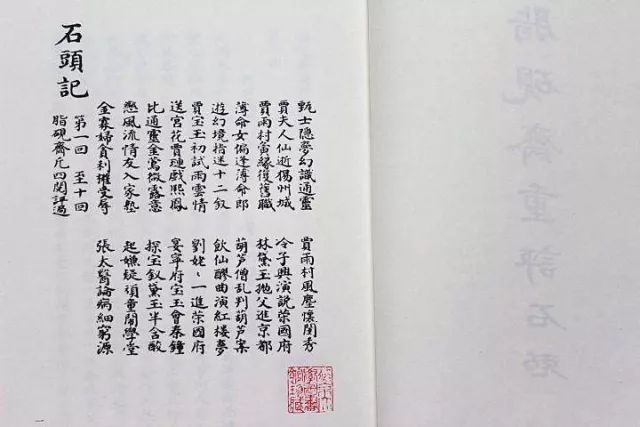 脂硯齋重評石頭
甄士隐夢幻識通靈 賈雨村風塵懷閨秀
賈夫人仙逝揚州城 冷子興演說荣國府
賈雨村夤緣復舊職 林黛玉抛父進京都
薄命女偏逢薄命郎 葫芦僧乱判葫芦案
遊幻境指迷十二釵 飲仙醪曲演紅楼夢
賈宝玉初試雨雲情 劉姥ヽ一進荣國府
送宮花賈璉戲熙鳳 宴寧府宝玉會秦鐘
比通靈金鶯微露意 探宝釵黛玉半含酸
戀風流情友入家塾 起嫌疑頑童閙學堂
金寡婦貪利權受辱 張太醫論病細窮源
第一回 至十回
脂硯齋凡四閱評過
石頭記
一